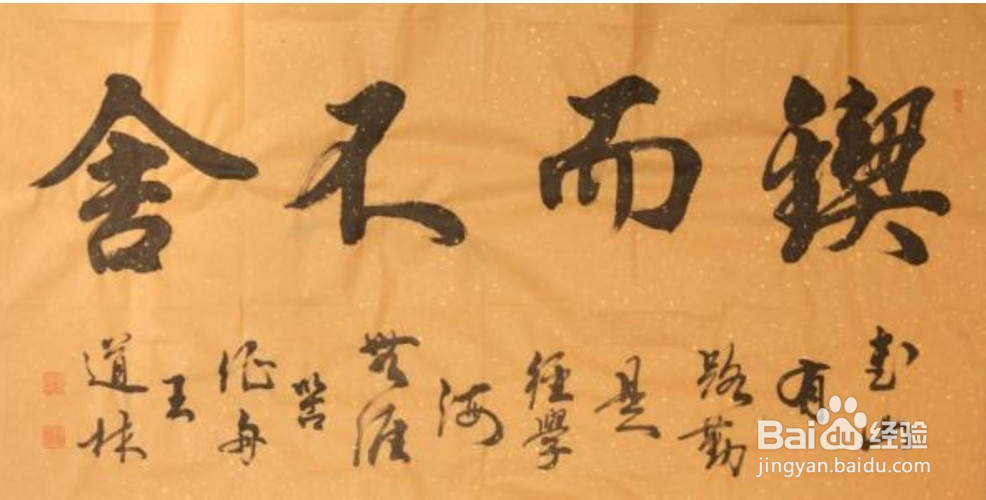 鍥而不舍
书山
有
路勤
是
径學
海
無涯
苦
作舟
王
道林
Bai du 经验
jingyan.baidu.com